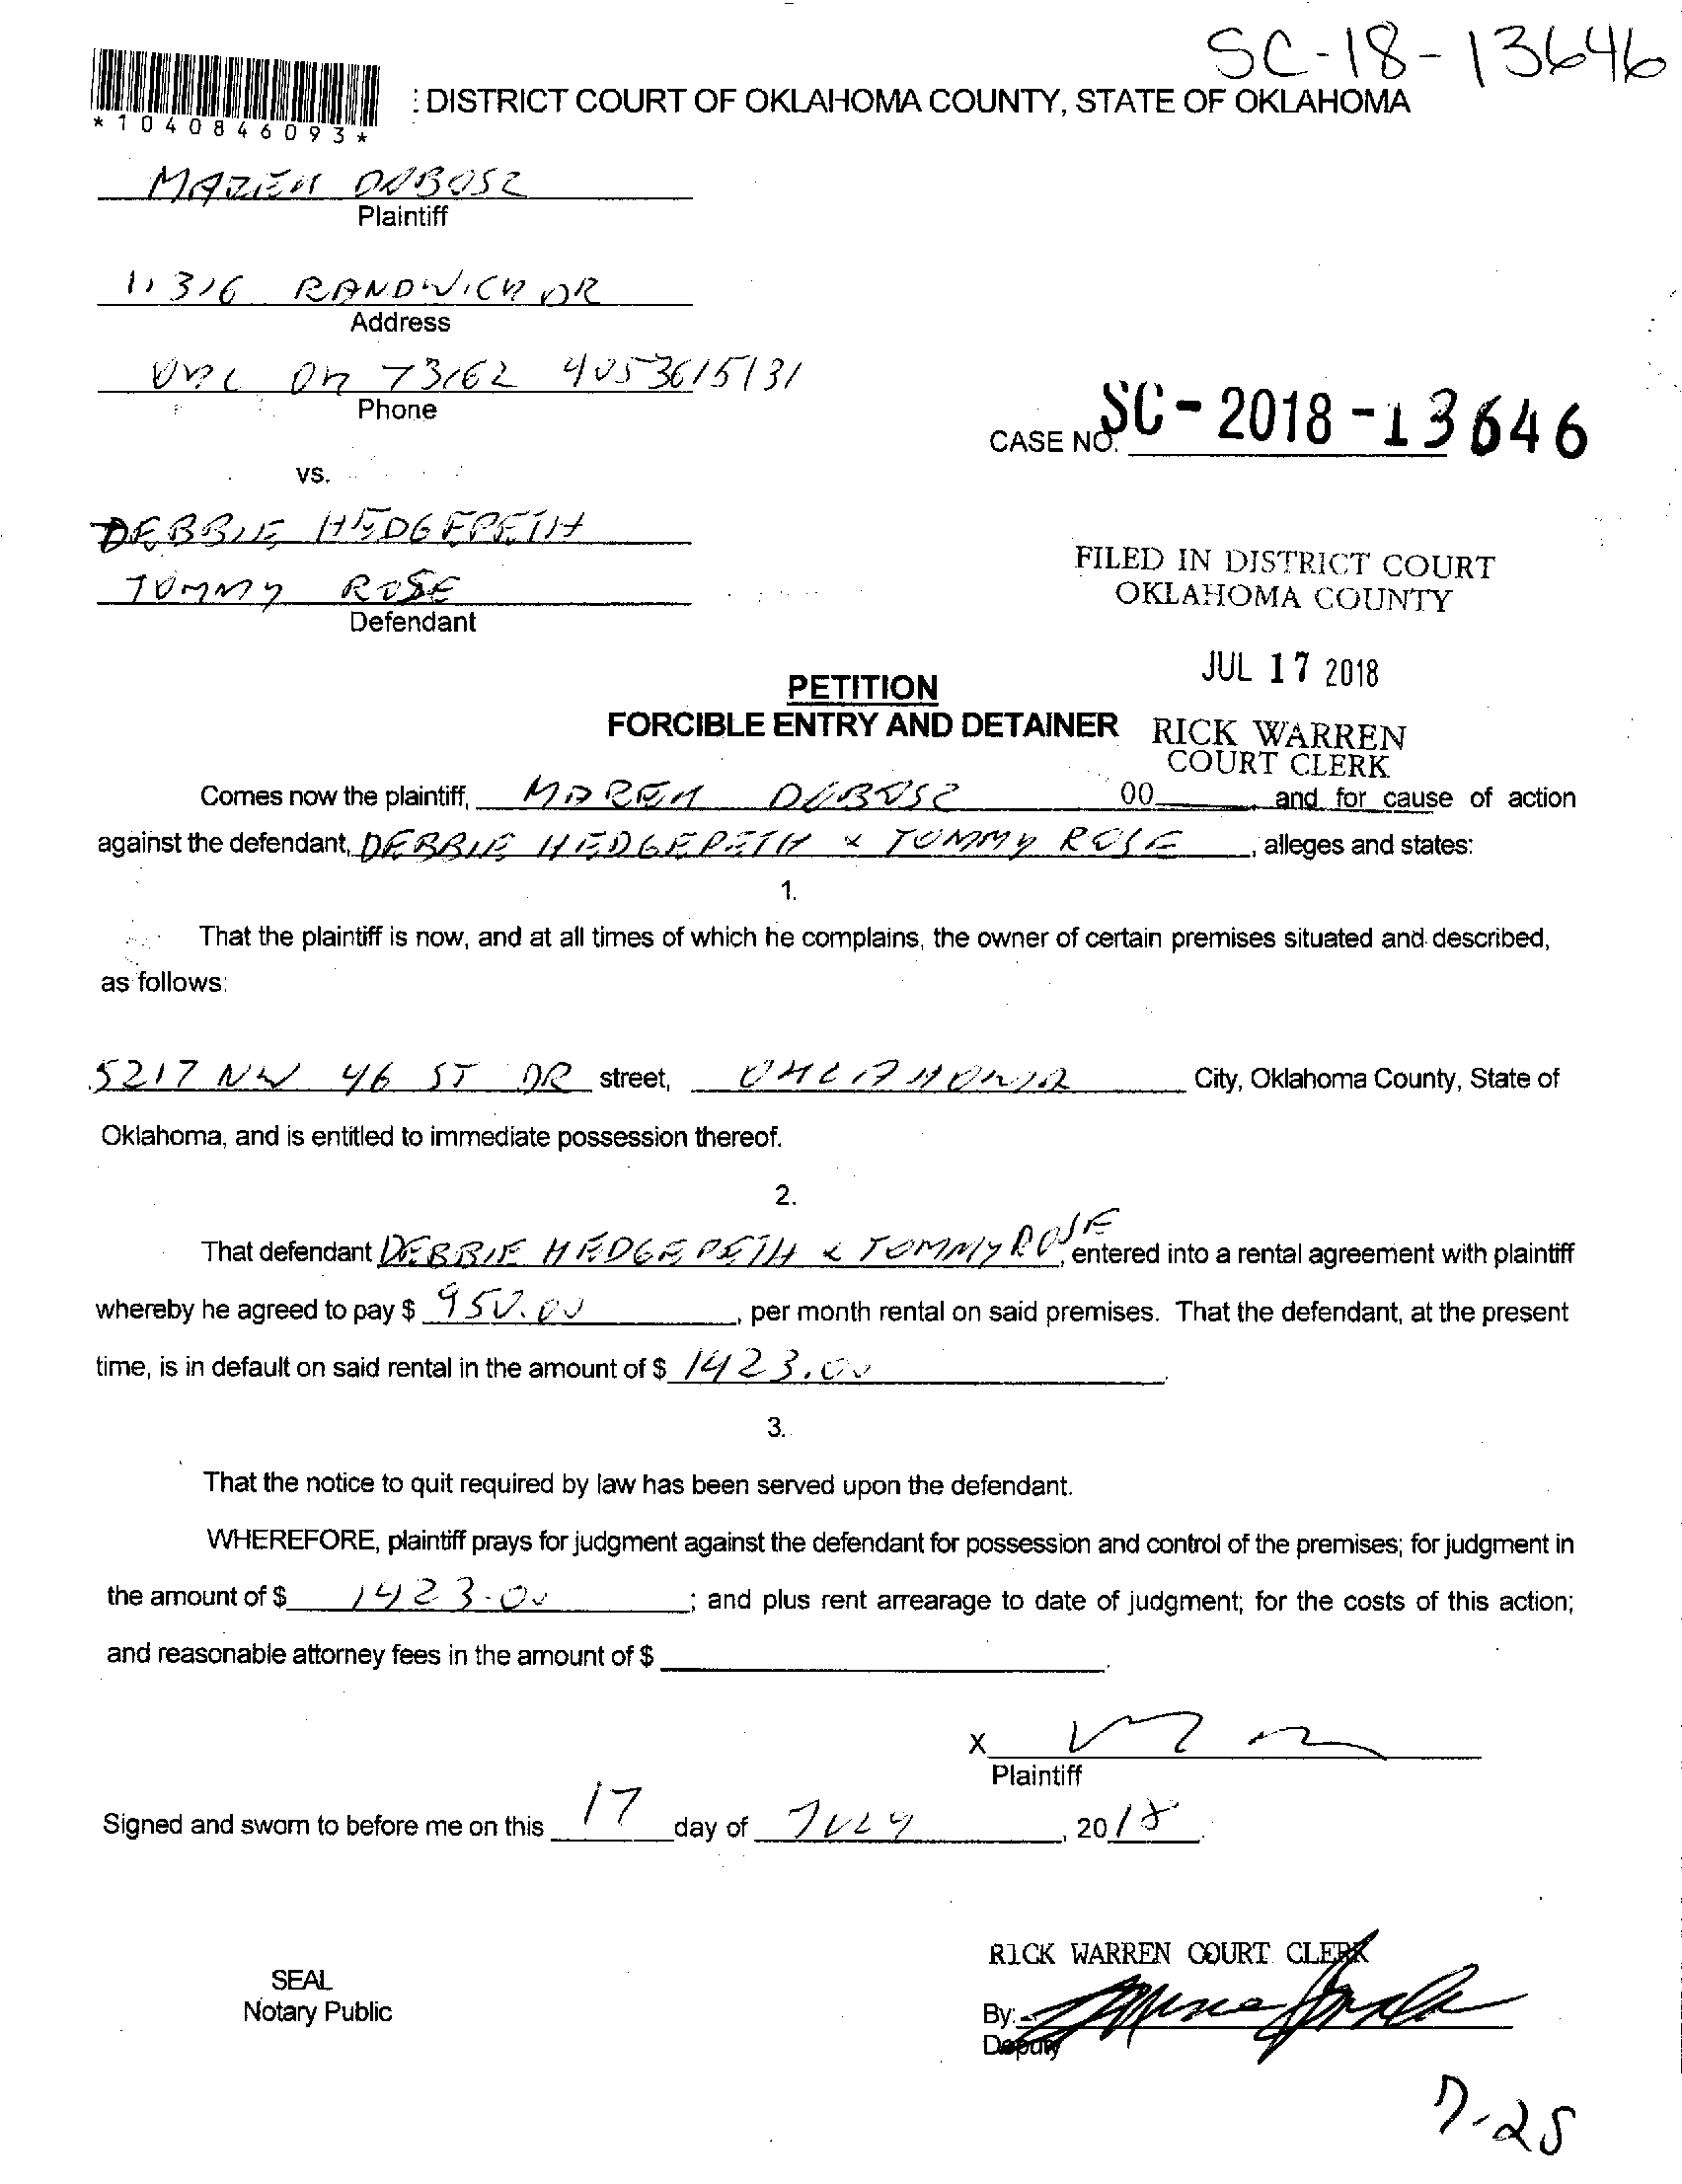 SC-18-13646
: DISTRICT COURT OF OKLAHOMA COUNTY, STATE OF OKLAHOMA
*1040846093*
MAREK DUBOSZ
Plaintiff
11316 RANDWICK DR
Address
OKC OK 73162 4053615131
Phone
CASE NO. SC-2018-13646
vs.
DEBBIE HEDGEPETH
TOMMY ROSE
Defendant
FILED IN DISTRICT COURT
OKLAHOMA COUNTY
JUL 17 2018
PETITION
FORCIBLE ENTRY AND DETAINER
RICK WARREN
COURT CLERK
Comes now the plaintiff, MAREK DUBOSZ 00 and for cause of action
against the defendant, DEBBIE HEDGEPETH & TOMMY ROSE, alleges and states:
1.
That the plaintiff is now, and at all times of which he complains, the owner of certain premises situated and described,
as follows:
5217 NW 46 ST DR street, OKLAHOMA City, Oklahoma County, State of
Oklahoma, and is entitled to immediate possession thereof.
2.
That defendant DEBBIE HEDGEPETH & TOMMY ROSE, entered into a rental agreement with plaintiff
whereby he agreed to pay $ 950.00, per month rental on said premises. That the defendant, at the present
time, is in default on said rental in the amount of $ 1423.00.
3.
That the notice to quit required by law has been served upon the defendant.
WHEREFORE, plaintiff prays for judgment against the defendant for possession and control of the premises; for judgment in
the amount of $ 1423.00; and plus rent arrearage to date of judgment; for the costs of this action;
and reasonable attorney fees in the amount of $ .
X
Plaintiff
Signed and sworn to before me on this 17 day of JULY, 2018.
RICK WARREN COURT CLERK
SEAL
Notary Public
By:
Deputy
7-25